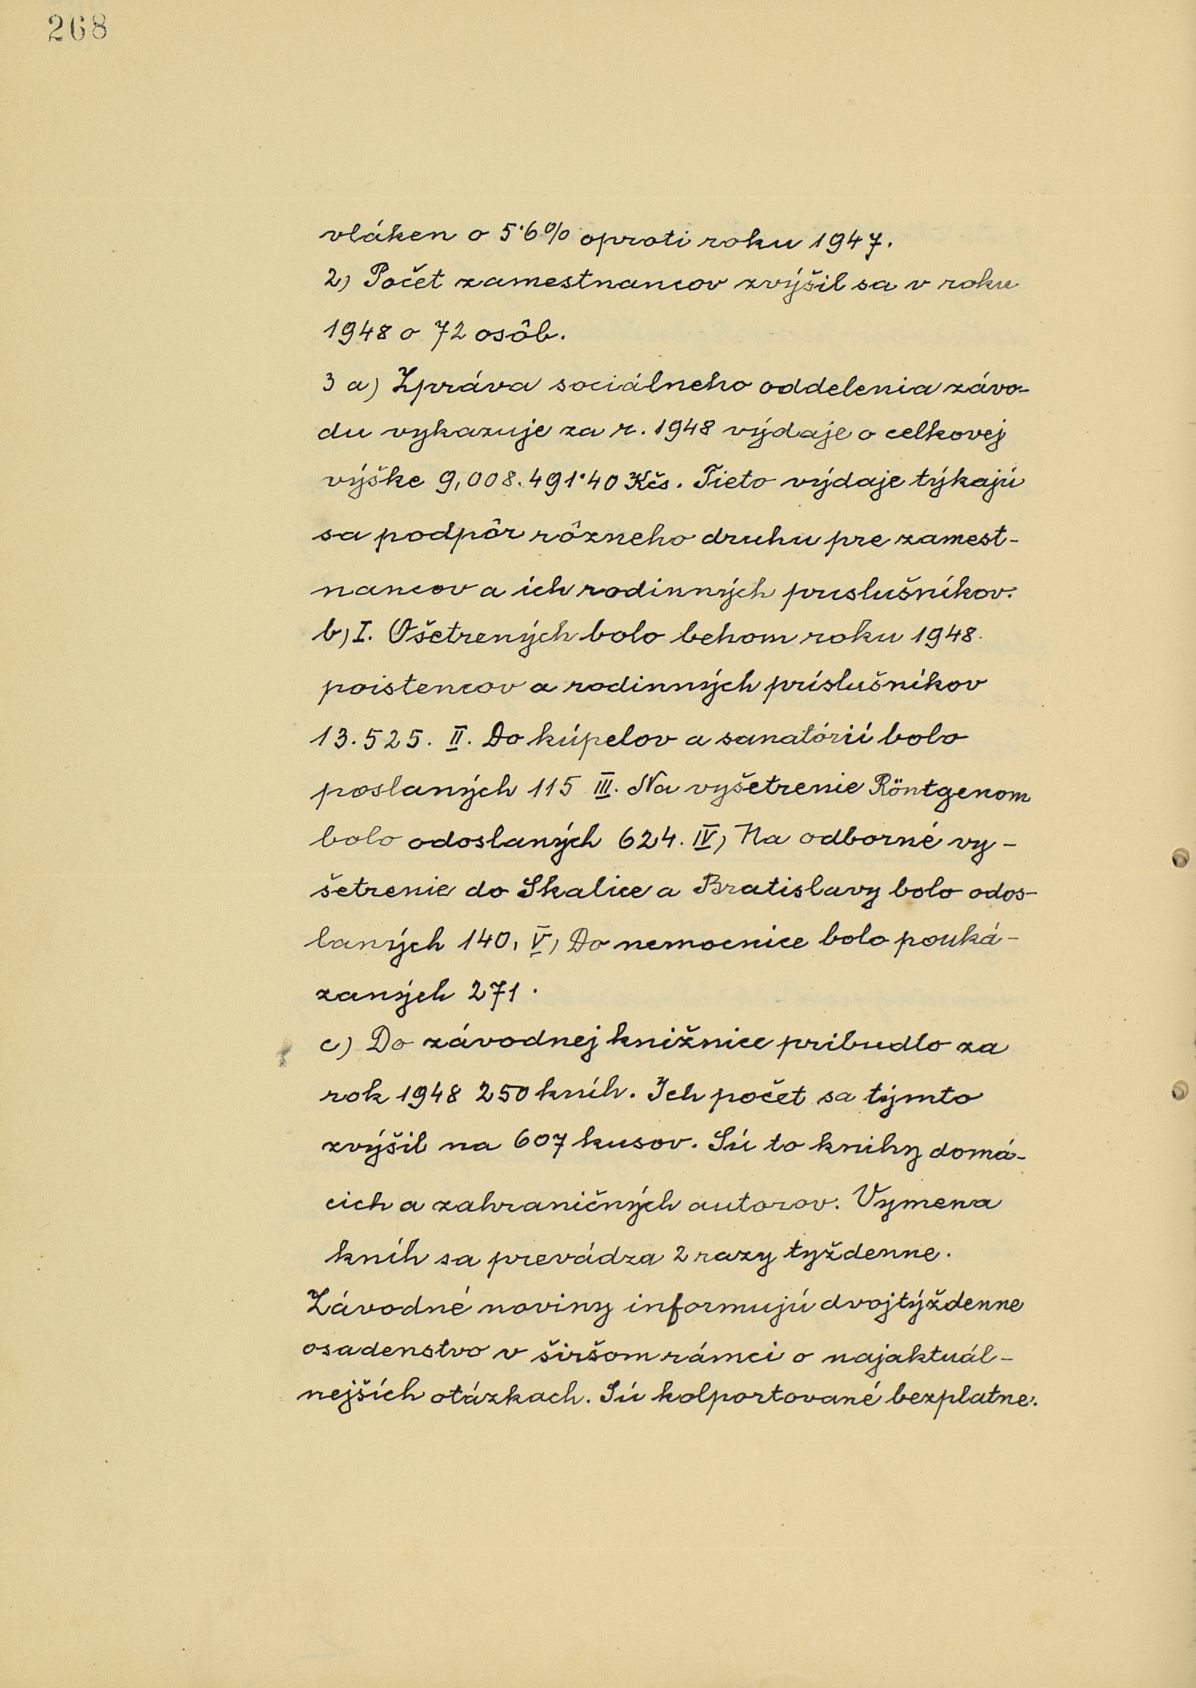 268
vláken o 5·6% oproti roku 1947.
2) Počet zamestnancov zvýšil sa v roku
1948 o 72 osôb.
3 a) Zpráva sociálneho oddelenia závo-
du vykazuje za r. 1948 výdaje o celkovej
výške 9,008.491·40 Kčs. Tieto výdaje týkajú
sa podpôr rôzneho druhu pre zamest-
nancov a ich rodinných prislušníkov.
b) I. Ošetrených bolo behom roku 1948
poistencov a rodinných príslušníkov
13.525. II. Do kúpelov a sanatórií bolo
poslaných 115 III. Na vyšetrenie Röntgenom
bolo odoslaných 624. IV) Na odborné vy-
šetrenie do Skalice a Bratislavy bolo odos-
laných 140, V) Do nemocnice bolo pouká-
zaných 271.
c) Do závodnej knižnice pribudlo za
rok 1948 250 kníh. Ich počet sa týmto
zvýšil na 607 kusov. Sú to knihy domá-
cich a zahraničných autorov. Vymena
kníh sa prevádza 2 razy tyždenne.
Závodné noviny informujú dvojtýždenne
osadenstvo v širšom rámci o najaktuál-
nejších otázkach. Sú kolportované bezplatne.